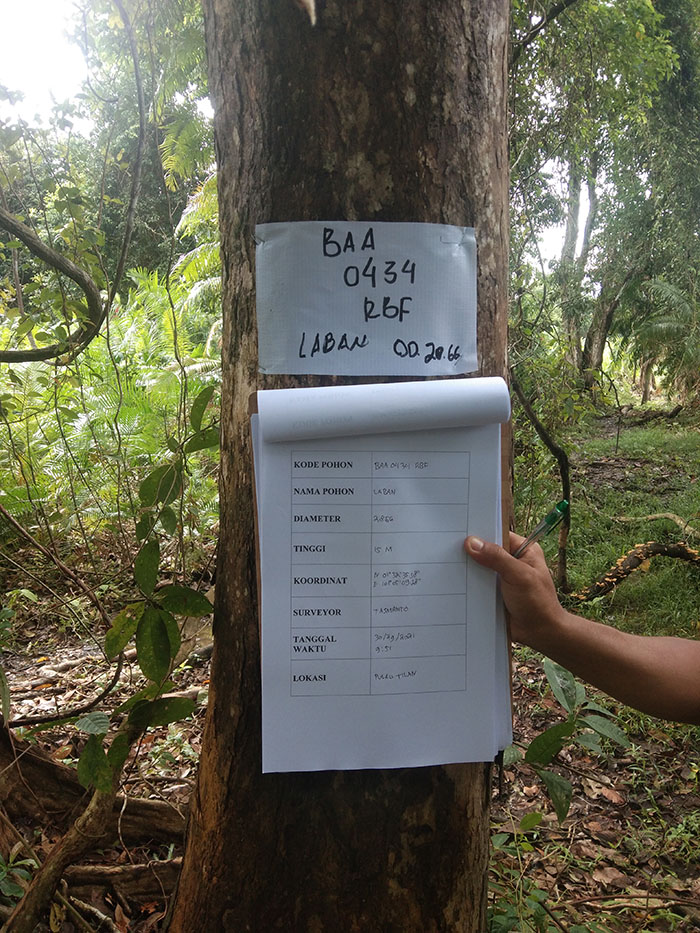 BAA
0434
RBF
LABAN OD. 28.66
KODE POHON
KODE POHON BAA 0434 RBF
NAMA POHON LABAN
DIAMETER 28.66
TINGGI 15 M
KOORDINAT
SURVEYOR TASMANTO
TANGGAL
WAKTU 9:51
LOKASI PULAU TILAN